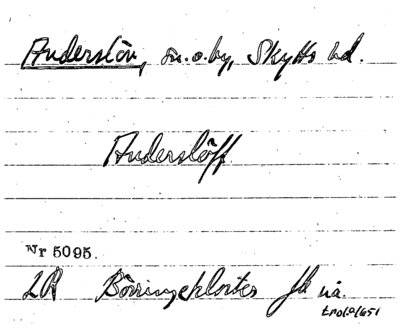 Anderslöv, sn. o. by, Skytts hd.
Anderslöff
Nr 5095.
LR Börringekloster Jb